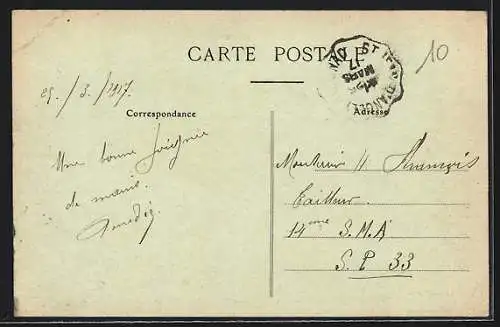 CARTE POSTALE
10
25/3/1917.
Correspondance
Adresse
Une bonne poignée
de mains.
Amedé
Monsieur H. François
Tailleur
14ème S.M.A
S.P 33
MARS
17